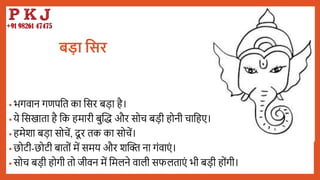 P K J
+91 98261 47475
बड़ा सिर
• भगवान गणपति का सिर बड़ा है।
• ये सिखाता है कि हमारी बुद्धि और सोच बड़ी होनी चाहिए।
• हमेशा बड़ा सोचें, दूर तक का सोचें।
• छोटी-छोटी बातों में समय और शक्ति ना गंवाएं।
• सोच बड़ी होगी तो जीवन में मिलने वाली सफलताएं भी बड़ी होंगी।